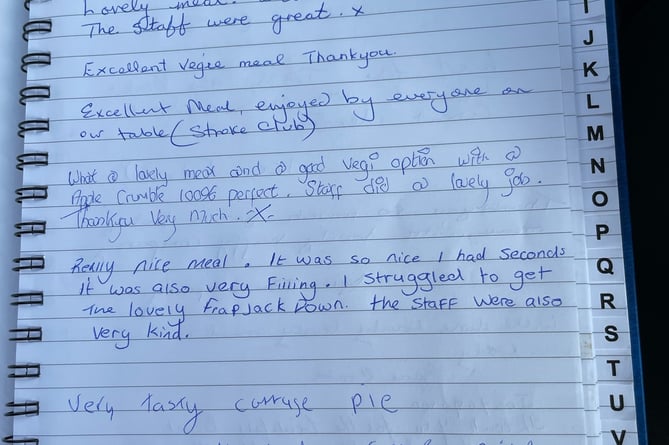 Lovely meal.
The Staff were great. x
Excellent vegie meal Thankyou.
Excellent Meal, enjoyed by everyone on
our table (Stroke Club)
What a lovely meal and a good vegi option with a
Apple Crumble 100% perfect. Staff did a lovely job.
Thankyou Very Much. -X-
Really nice meal. It was so nice I had Seconds
It was also very Filling. I struggled to get
the lovely FrapJack Down. the Staff were also
very kind.
Very tasty cottage pie
I
J
K
L
M
N
O
P
Q
R
S
T
U
V